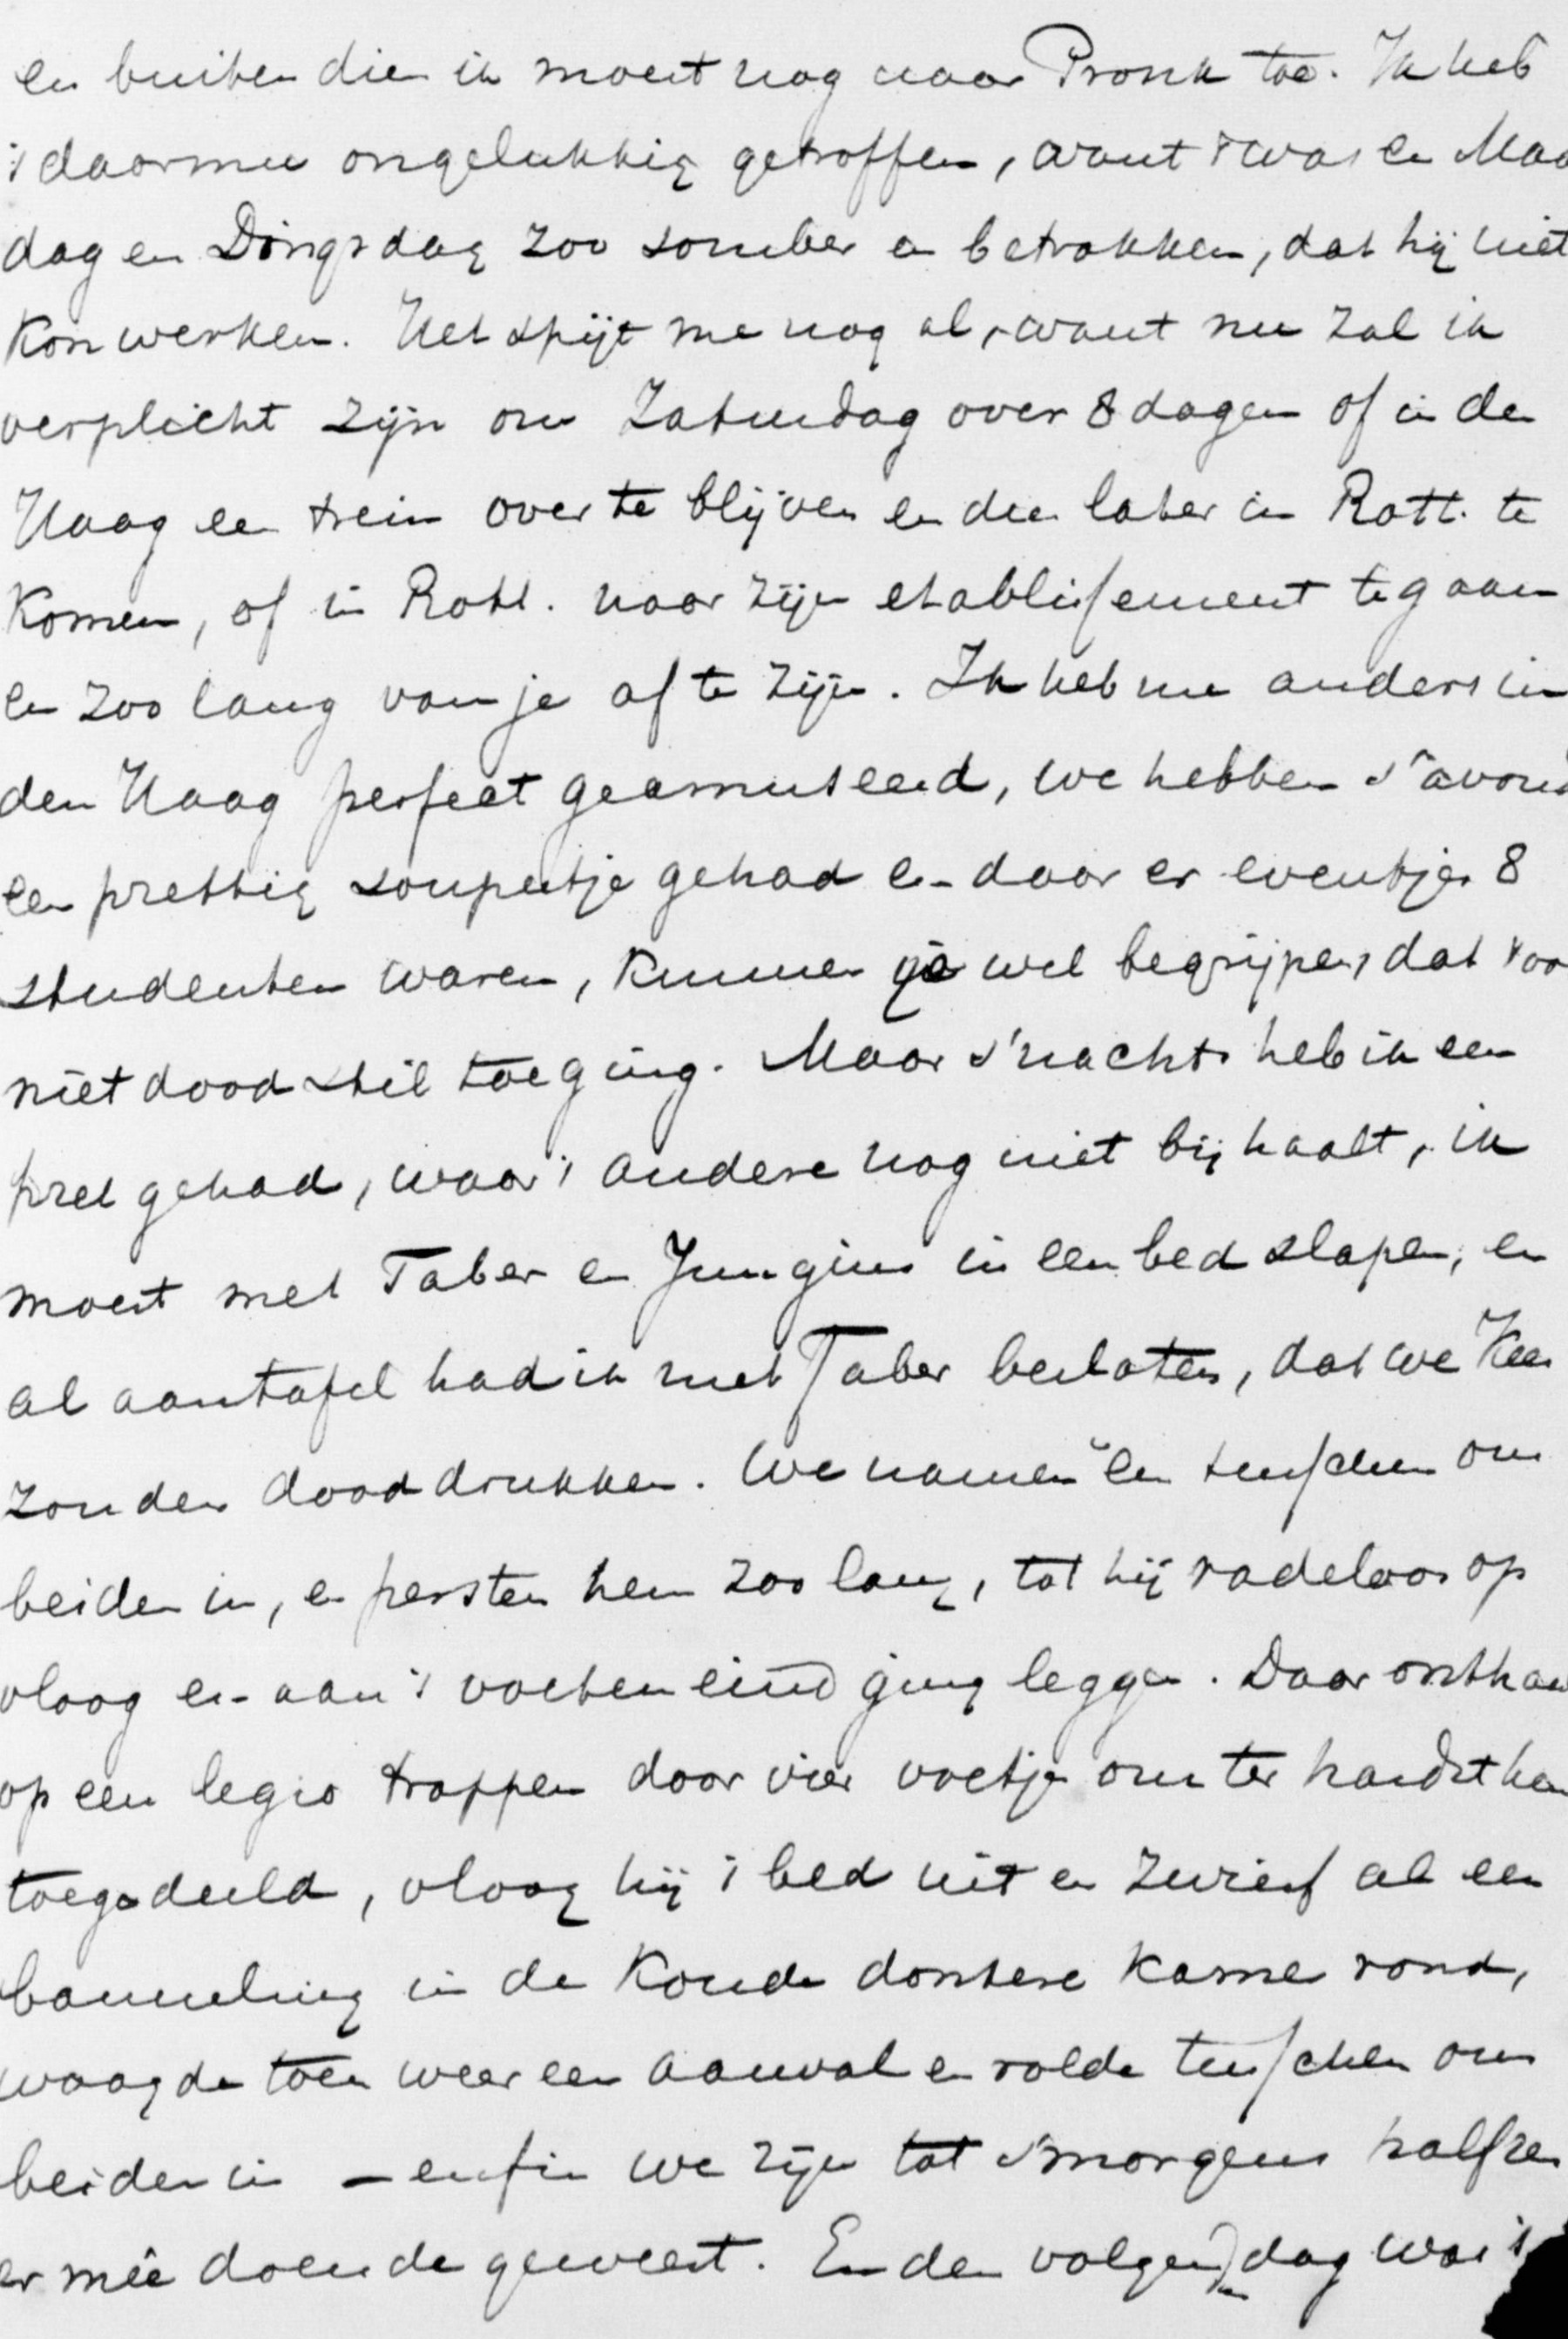 en buiten dien ik moest nog naar Pronk toe. Ik heb
't daarmee ongelukkig getroffen, want 't was en Maa
dag en Dingsdag zoo somber en betrokken, dat hij niet
kon werken. Het spijt me nog al, want nu zal ik
verplicht zijn om Zaturdag over 8 dagen of in den
Haag een trein over te blijven en dus later in Rott. te
komen, of in Rott. naar zijn etablissement te gaan
en zoo lang van je af te zijn. Ik heb me anders in
den Haag perfect geamuseerd, we hebben s'avond
een prettig soupeetje gehad en daar er eventjes 8
studenten waren, kunnen je wel begrijpen, dat 't oo
niet dood stil toeging. Maar s'nachts heb ik een
pret gehad, waar 't andere nog niet bij haalt, ik
moest met Taber en Jungius in een bed slapen, en
al aan tafel had ik met Taber besloten, dat we Kees
zouden dood drukken. We namen 'em tusschen ons
beiden in, en persten hem zoo lang, tot hij radeloos op
vloog en aan 't voeteneind ging leggen. Daar onthaa
op een legio trappen door vier voetjes om ter hardst hem
toegedeeld, vloog hij 't bed uit en zwierf als een
banneling in de koude donkere kamer rond,
waagde toen weer een aanval en rolde tusschen ons
beiden in — enfin we zijn tot s'morgens half zes
er meê doende geweest. En den volgenden dag was 't